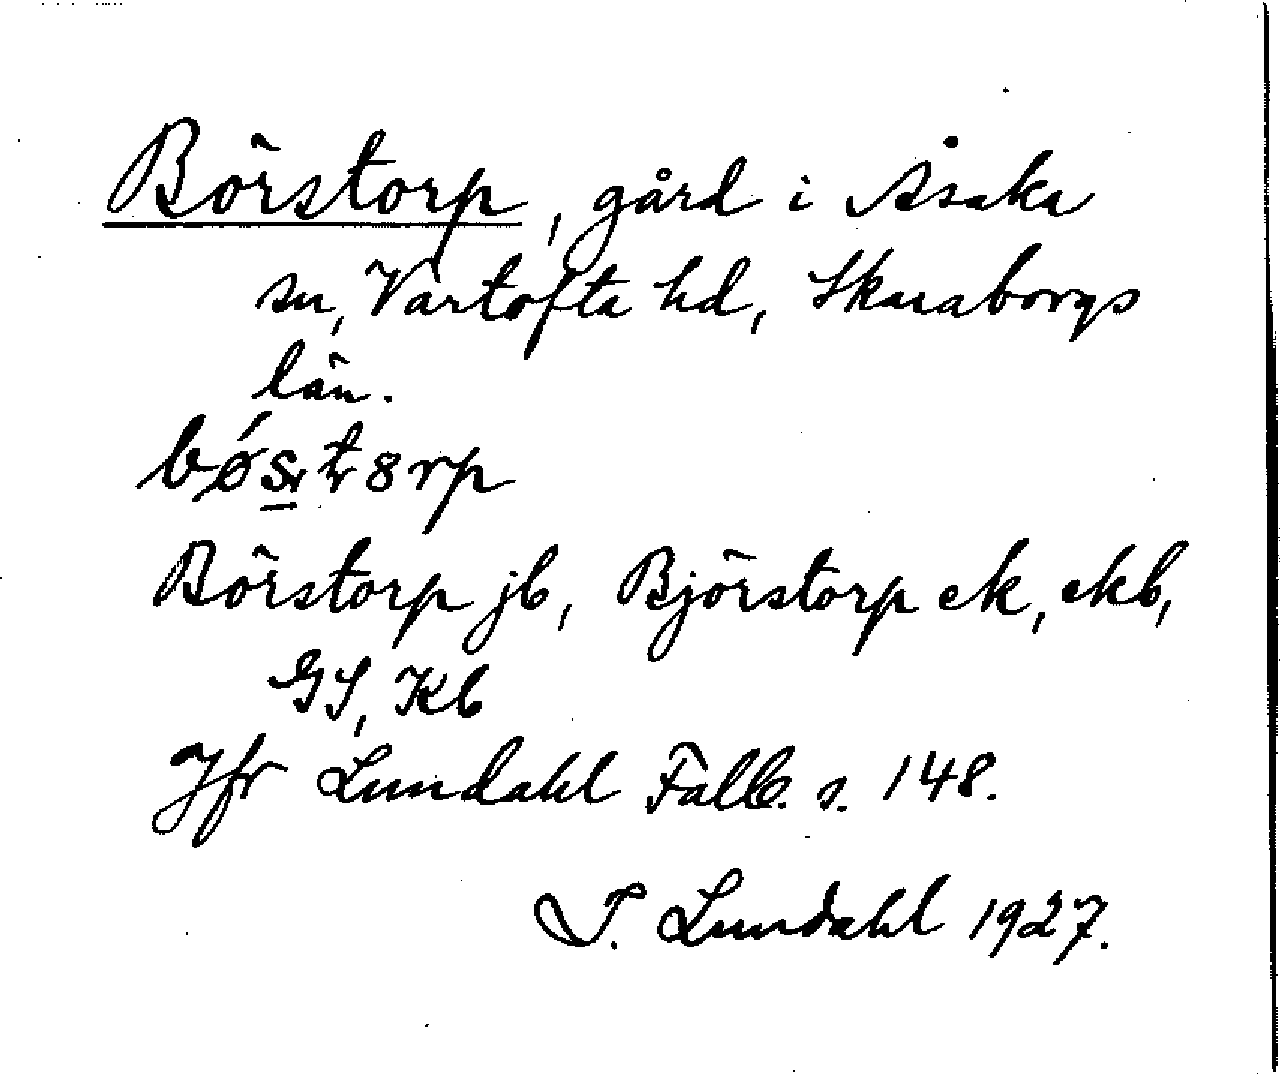 Börstorp, gård i Åsaka
sn, Vartofta hd, Skaraborgs
län.
Börstorp jb, Björstorp ek, ekb,
GS, Kb
Jfr Lundahl Falb. s. 148.
I. Lundahl 1927.